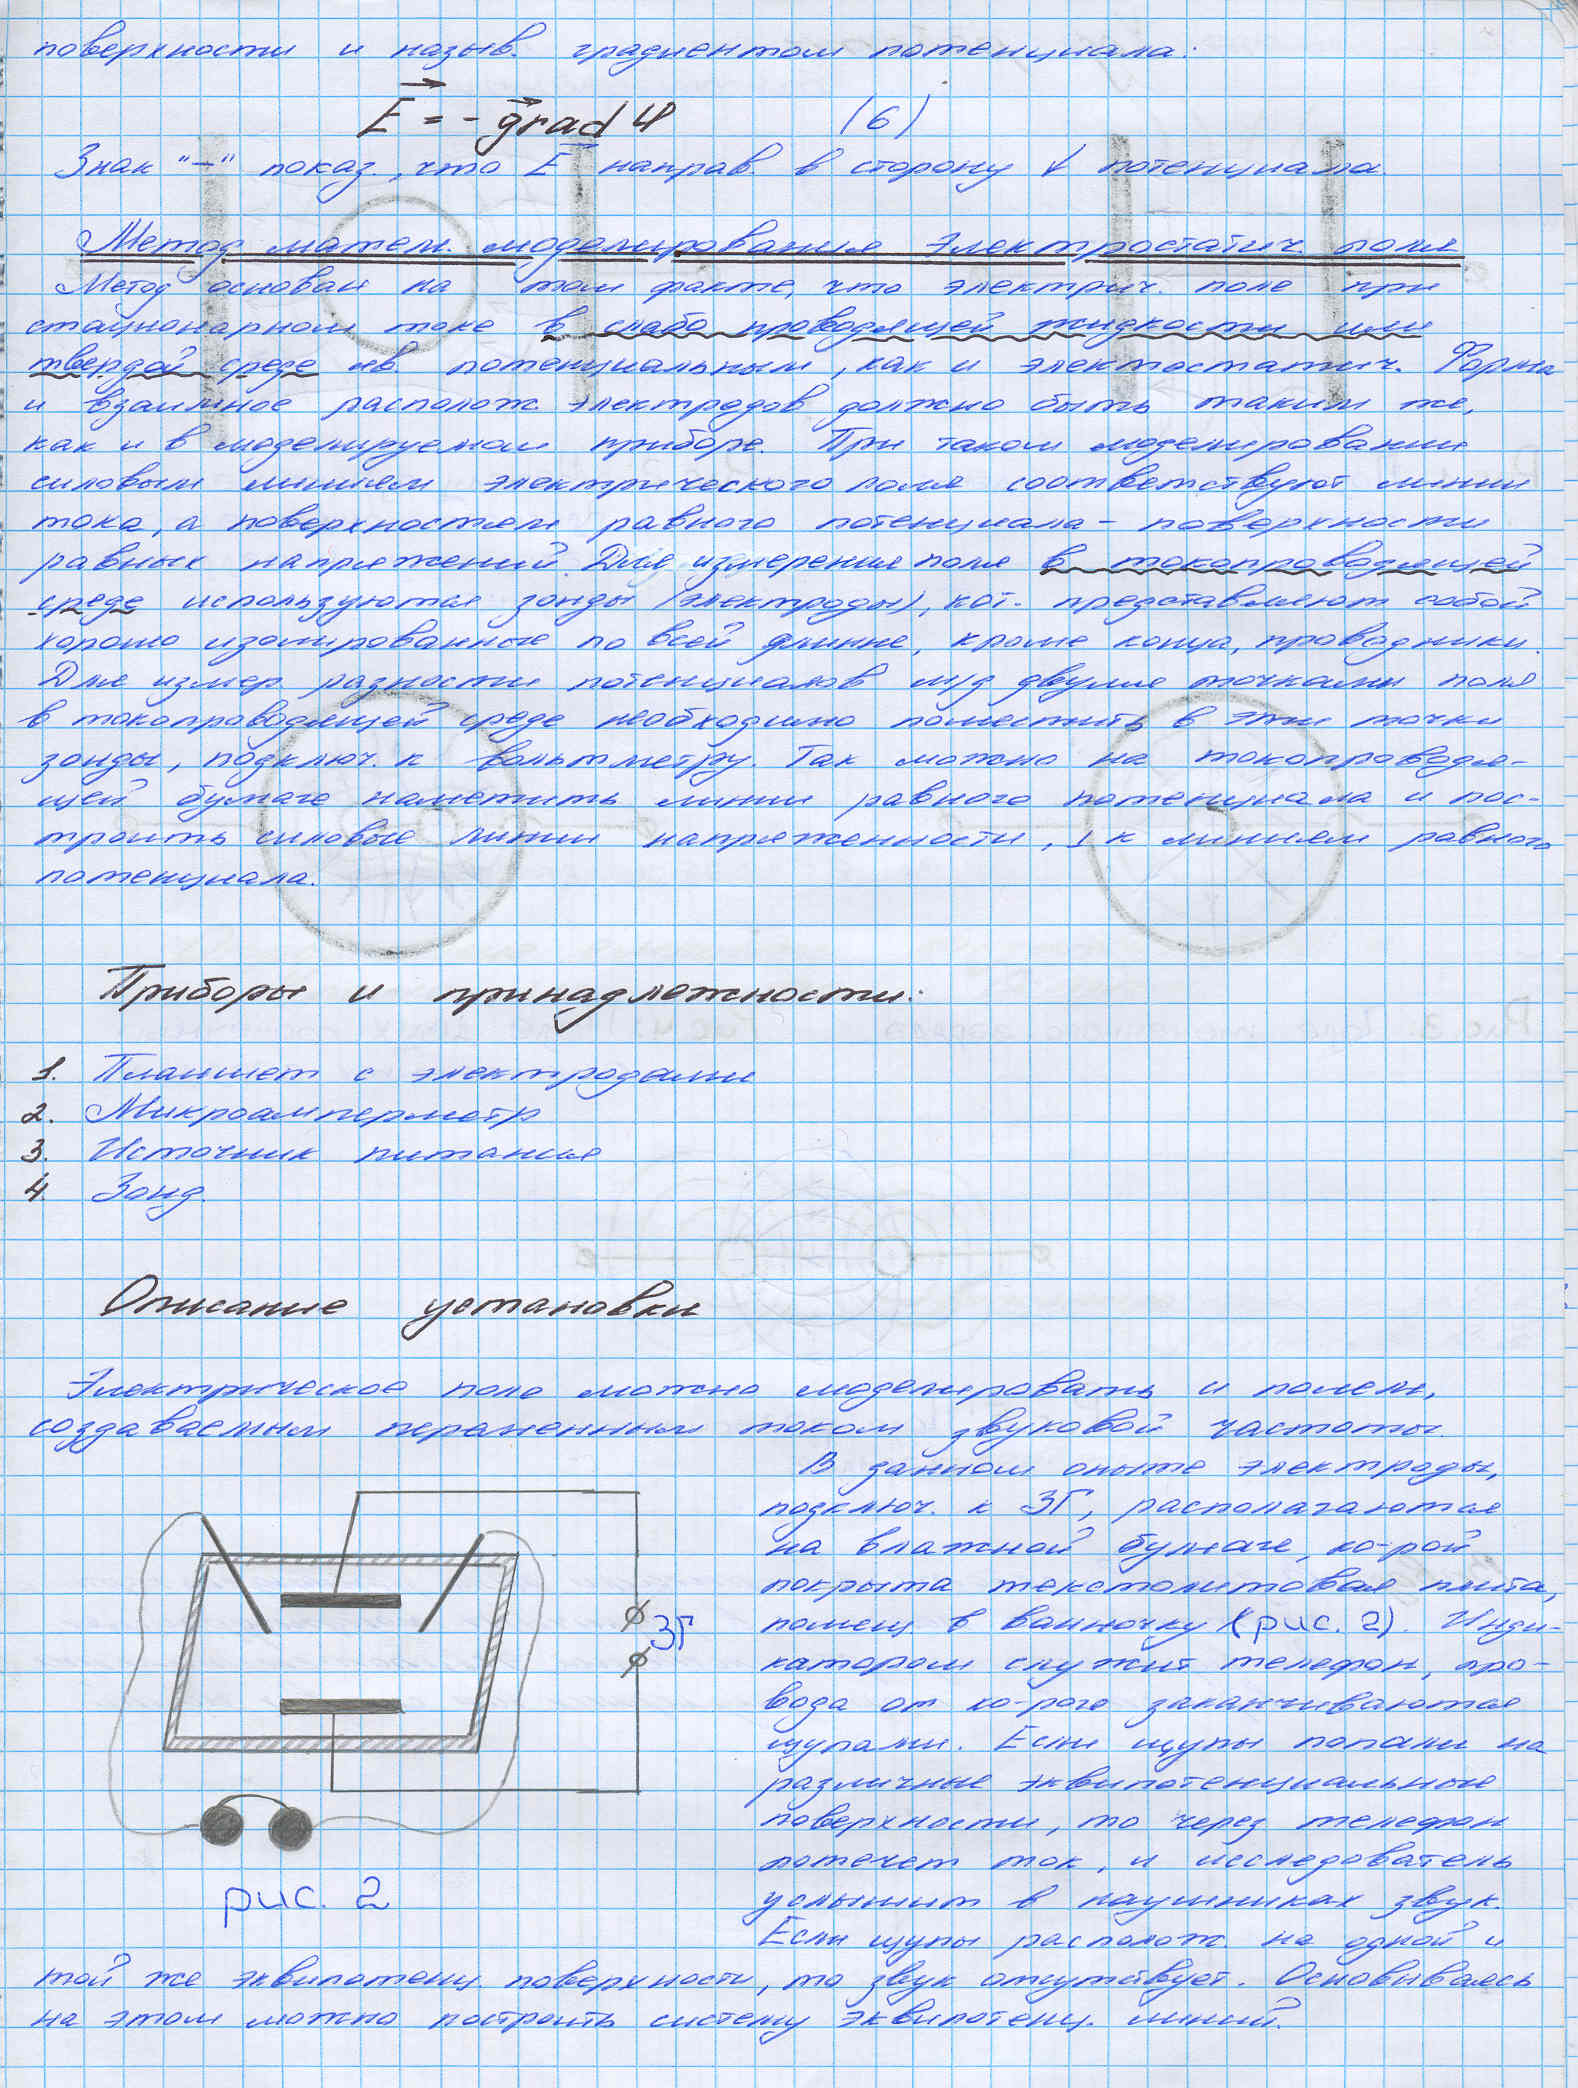 поверхности и назыв. градиентом потенциала:
E = - grad φ (6)
Знак "—" показ., что E направ. в сторону ↓ потенциала.
Метод матем. моделирования электростатич. поля
Метод основан на том факте, что электрич. поле при
стационарном токе в слабо проводящей жидкости или
твердой среде яв. потенциальным, как и электростатич. Форма
и взаимное располож. электродов должно быть таким же,
как и в моделируемом приборе. При таком моделировании
силовым линиям электрического поля соответствуют линии
тока, а поверхностям равного потенциала - поверхности
равных напряжений. Для измерения поля в токопроводящей
среде используются зонды (электроды), кот. представляют собой
хорошо изолированные по всей длинне, кроме конца, проводники.
Для измер. разности потенциалов м/д двумя точками поля
в токопроводящей среде необходимо поместить в эти точки
зонды, подключ. к вольтметру. Так можно на токопроводя-
щей бумаге наметить линии равного потенциала и пос-
троить силовые линии напряженности, ⊥ к линиям равного
потенциала.
Приборы и принадлежности:
1. Планшет с электродами
2. Микроамперметр
3. Источник питания
4. Зонд.
Описание установки
Электрическое поле можно моделировать и полем,
создаваемым переменным током звуковой частоты.
В данном опыте электроды,
подключ. к ЗГ, располагаются
на влажной бумаге, ко-рой
покрыта текстолитовая плита,
помещ. в ванночку (рис. 2). Инди-
катором служит телефон, про-
вода от ко-рого заканчиваются
щупами. Если щупы попали на
различные эквипотенциальные
поверхности, то через телефон
потечет ток, и исследователь
услышит в наушниках звук.
Если щупы располож. на одной и
той же эквипотенц. поверхности, то звук отсутствует. Основываясь
на этом можно построить систему эквипотенц. линий.
ЗГ
рис. 2